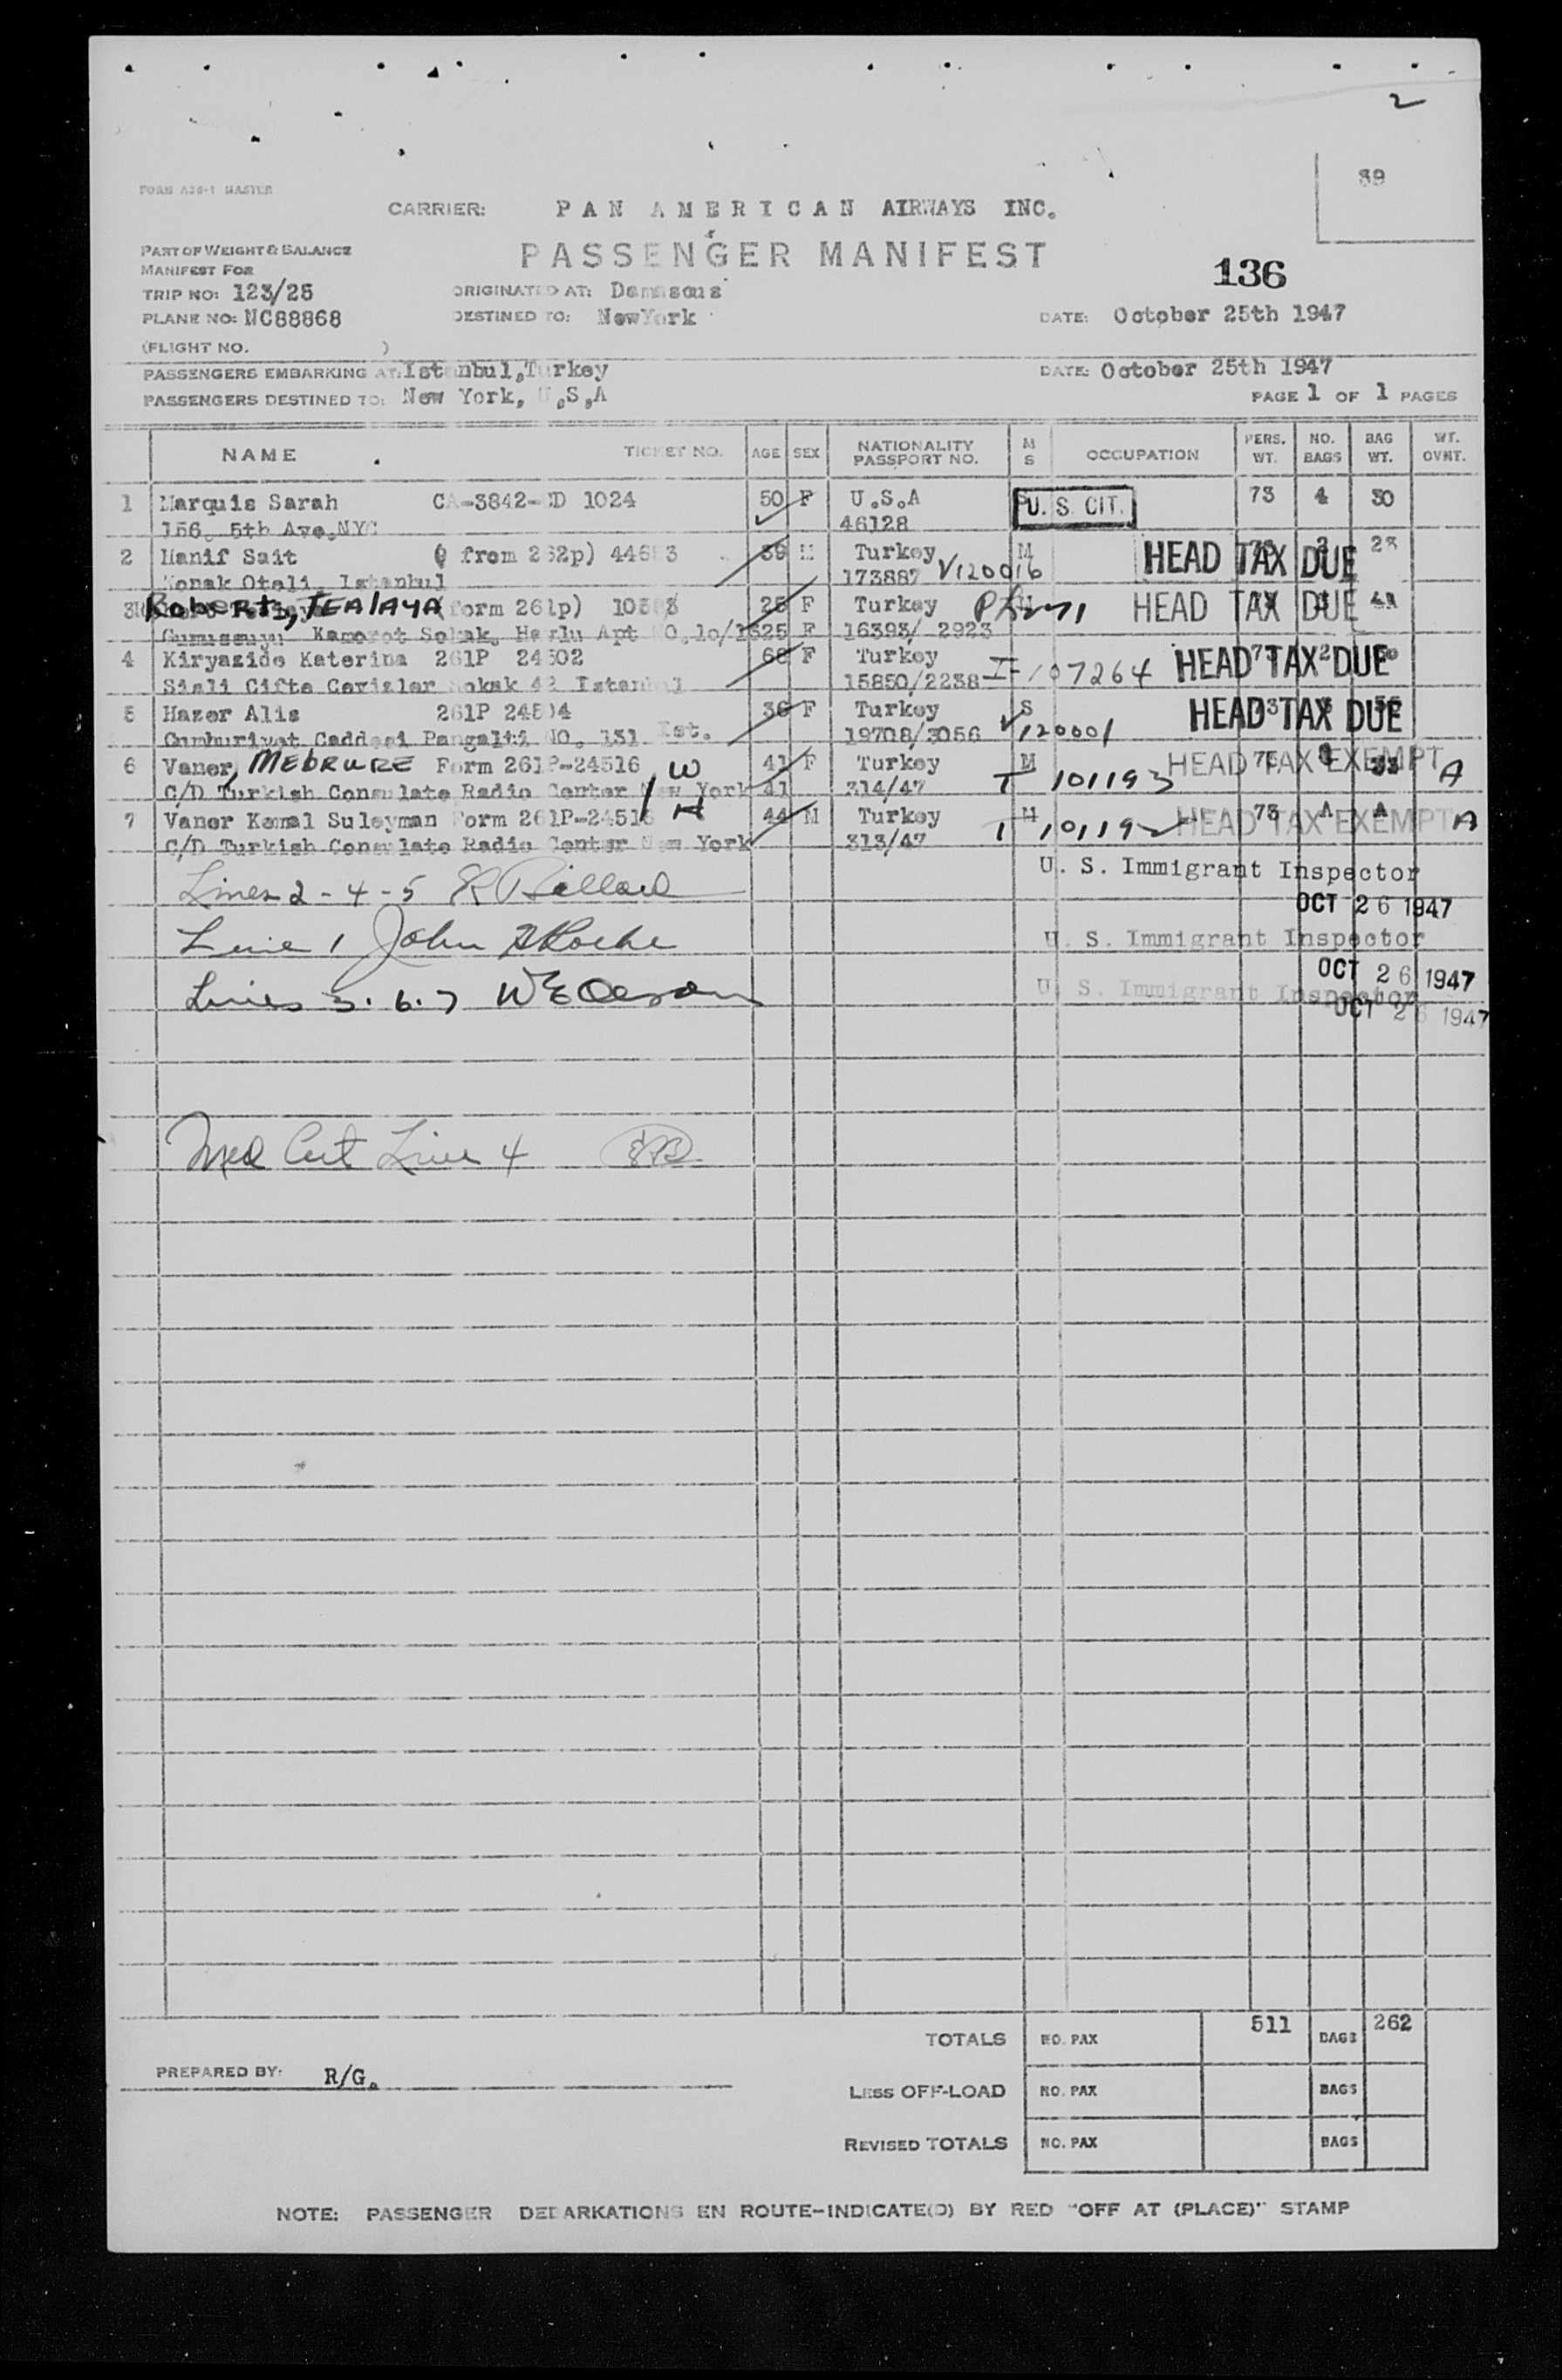 2
39
FORM A36-1 MASTER
CARRIER: PAN AMERICAN AIRWAYS INC.
PASSENGER MANIFEST
136
PART OF WEIGHT & BALANCE
MANIFEST FOR
TRIP NO: 123/25
ORIGINATED AT: Damascus
PLANE NO: NC88868
DESTINED TO: NewYork
DATE: October 25th 1947
(FLIGHT NO. )
PASSENGERS EMBARKING AT: Istanbul, Turkey
DATE: October 25th 1947
PASSENGERS DESTINED TO: New York, U.S,A
PAGE 1 OF 1 PAGES
NAME TICKET NO. AGE SEX NATIONALITY PASSPORT NO. M S OCCUPATION PERS. WT. NO. BAGS BAG WT. WT. OVNT.
1 Marquis Sarah CA-3842- D 1024 50 F U.S.A S U. S. CIT. 73 4 30
156. 5th Ave.NYC 46128
2 Hanif Sait ( from 262p) 446 3 39 M Turkey M HEAD TAX DUE 23
Konak Oteli, Istanbul 173887 V120016
3 Roberts, TEALAYA form 261p) 103 25 F Turkey HEAD TAX DUE
Gumussuyu Kamorot Sokak, Apt NO.10/1 25 F 16393/ 2923
4 Kiryazide Katerina 261P 24502 68 F Turkey HEAD TAX DUE
Sisli Cifte Cevizler Sokak 42 Istanbul 15850/2238 I-107264
5 Hazer Alis 261P 24504 36 F Turkey S HEAD TAX DUE
Cumhuriyet Caddesi Pangalti NO. 131 Ist. 19708/3056 V120001
6 Vaner, MEDRURE Form 261P-24516 W 41 F Turkey M HEAD TAX EXEMPT A
C/D Turkish Consulate Radio Center New York 41 314/47 T 101193
7 Vaner Kemal Suleyman Form 261P-24515 H 44 M Turkey M 73 HEAD TAX EXEMPT A
C/D Turkish Consulate Radio Center New York 313/47 T 101192
U. S. Immigrant Inspector
Lines 2 - 4 - 5
OCT 26 1947
Line 1 John Roche
U. S. Immigrant Inspector
OCT 26 1947
Lines 3. 6. 7
U. S. Immigrant Inspector
OCT 26 1947
Med Cert Line 4
TOTALS NO. PAX 511 BAGS 262
PREPARED BY: R/G.
LESS OFF-LOAD NO. PAX BAGS
REVISED TOTALS NO. PAX BAGS
NOTE: PASSENGER DEBARKATIONS EN ROUTE-INDICATE(D) BY RED "OFF AT (PLACE)" STAMP